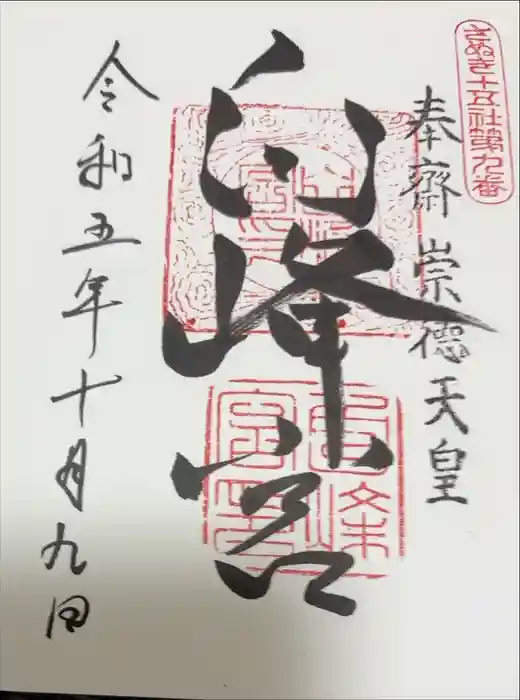 さぬき十五社第九番
奉齋 崇德天皇
白峰宮
令和五年十月九日